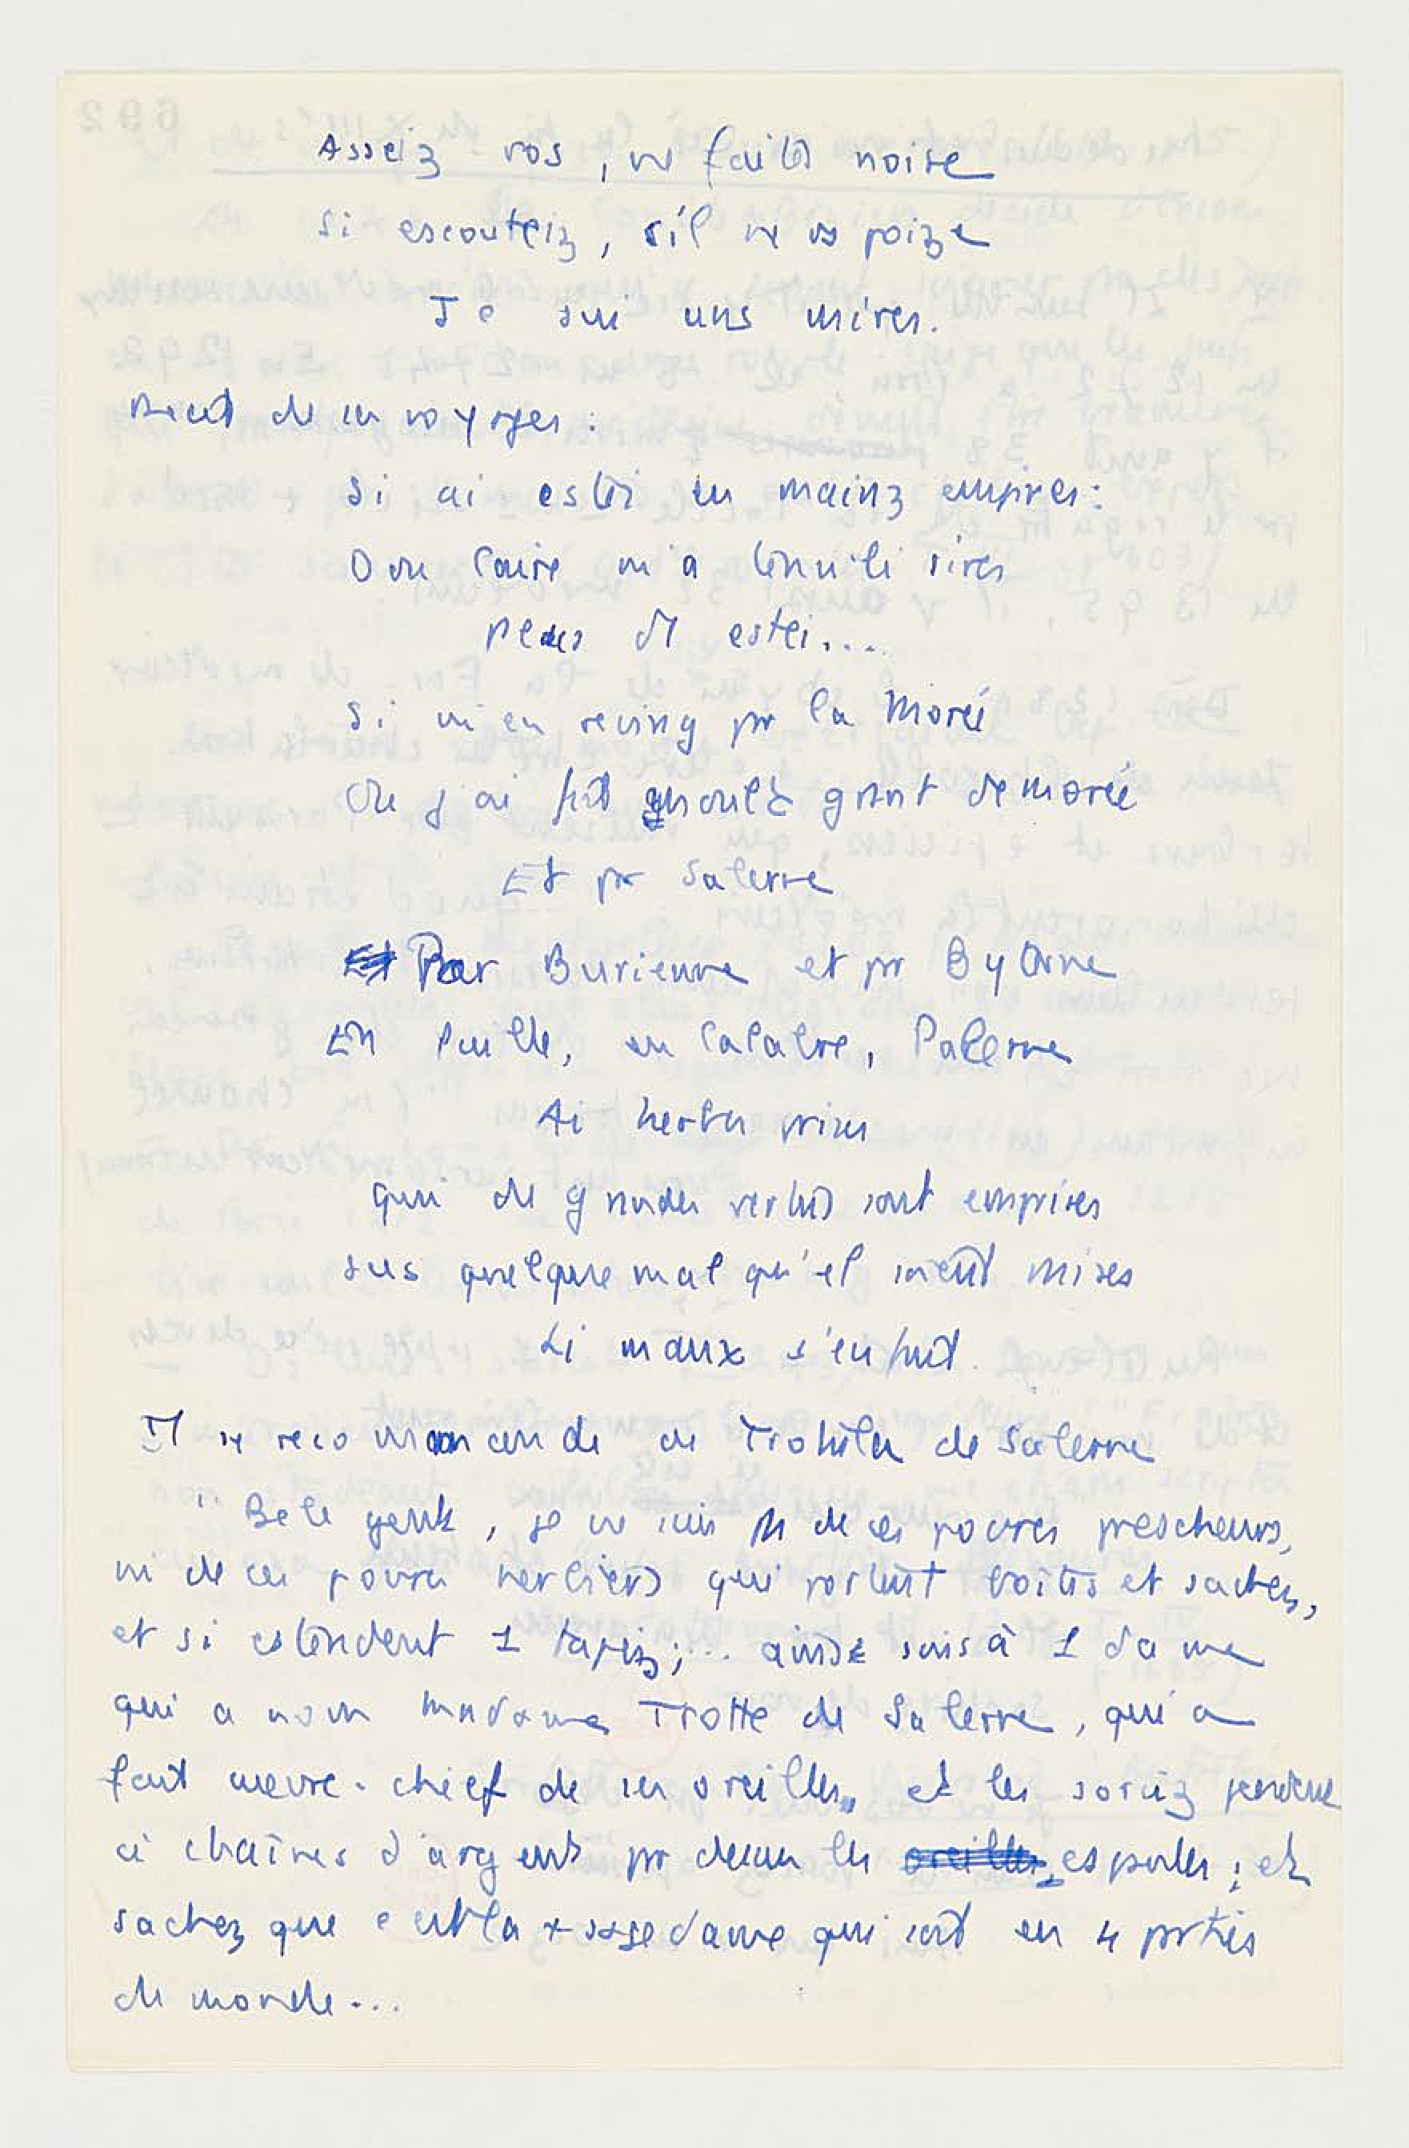 Asseiz vos, ne faites noise
Si escouteiz, s'il ne vos poize
Je sui uns mires.
Récit de ses voyages :
Si ai estei en mainz empires :
Dou Caire m'a tenu li sires
plus d'1 estei....
Si m'en reving pr la Morée
Ou j'ai fait moult grant demorée
Et pr Salerne
Par Burienne et pr Bytorne
En Puille, en Calabre, Palerne
Ai herbes prises
qui de grandes vertus sont emprises
sus quelque mal qu'el soient mises
Li maux s'enfuit.
Il se recommande de Trotula de Salerne
"Bele gent, je ne suis pas de ces povres prescheurs,
ni de ces povres herbiers qui portent boites et sachez,
et si estendent 1 tapiz;... ainz suis à 1 dame
qui a nom madame Trotte de Salerne, qui a
fait cuevre-chief de ses oreilles, et les sorciz pendent
à chaines d'argent pr dessus les espaules ; et
sachez que c'est la + sage dame qui soit en 4 parties
du monde...